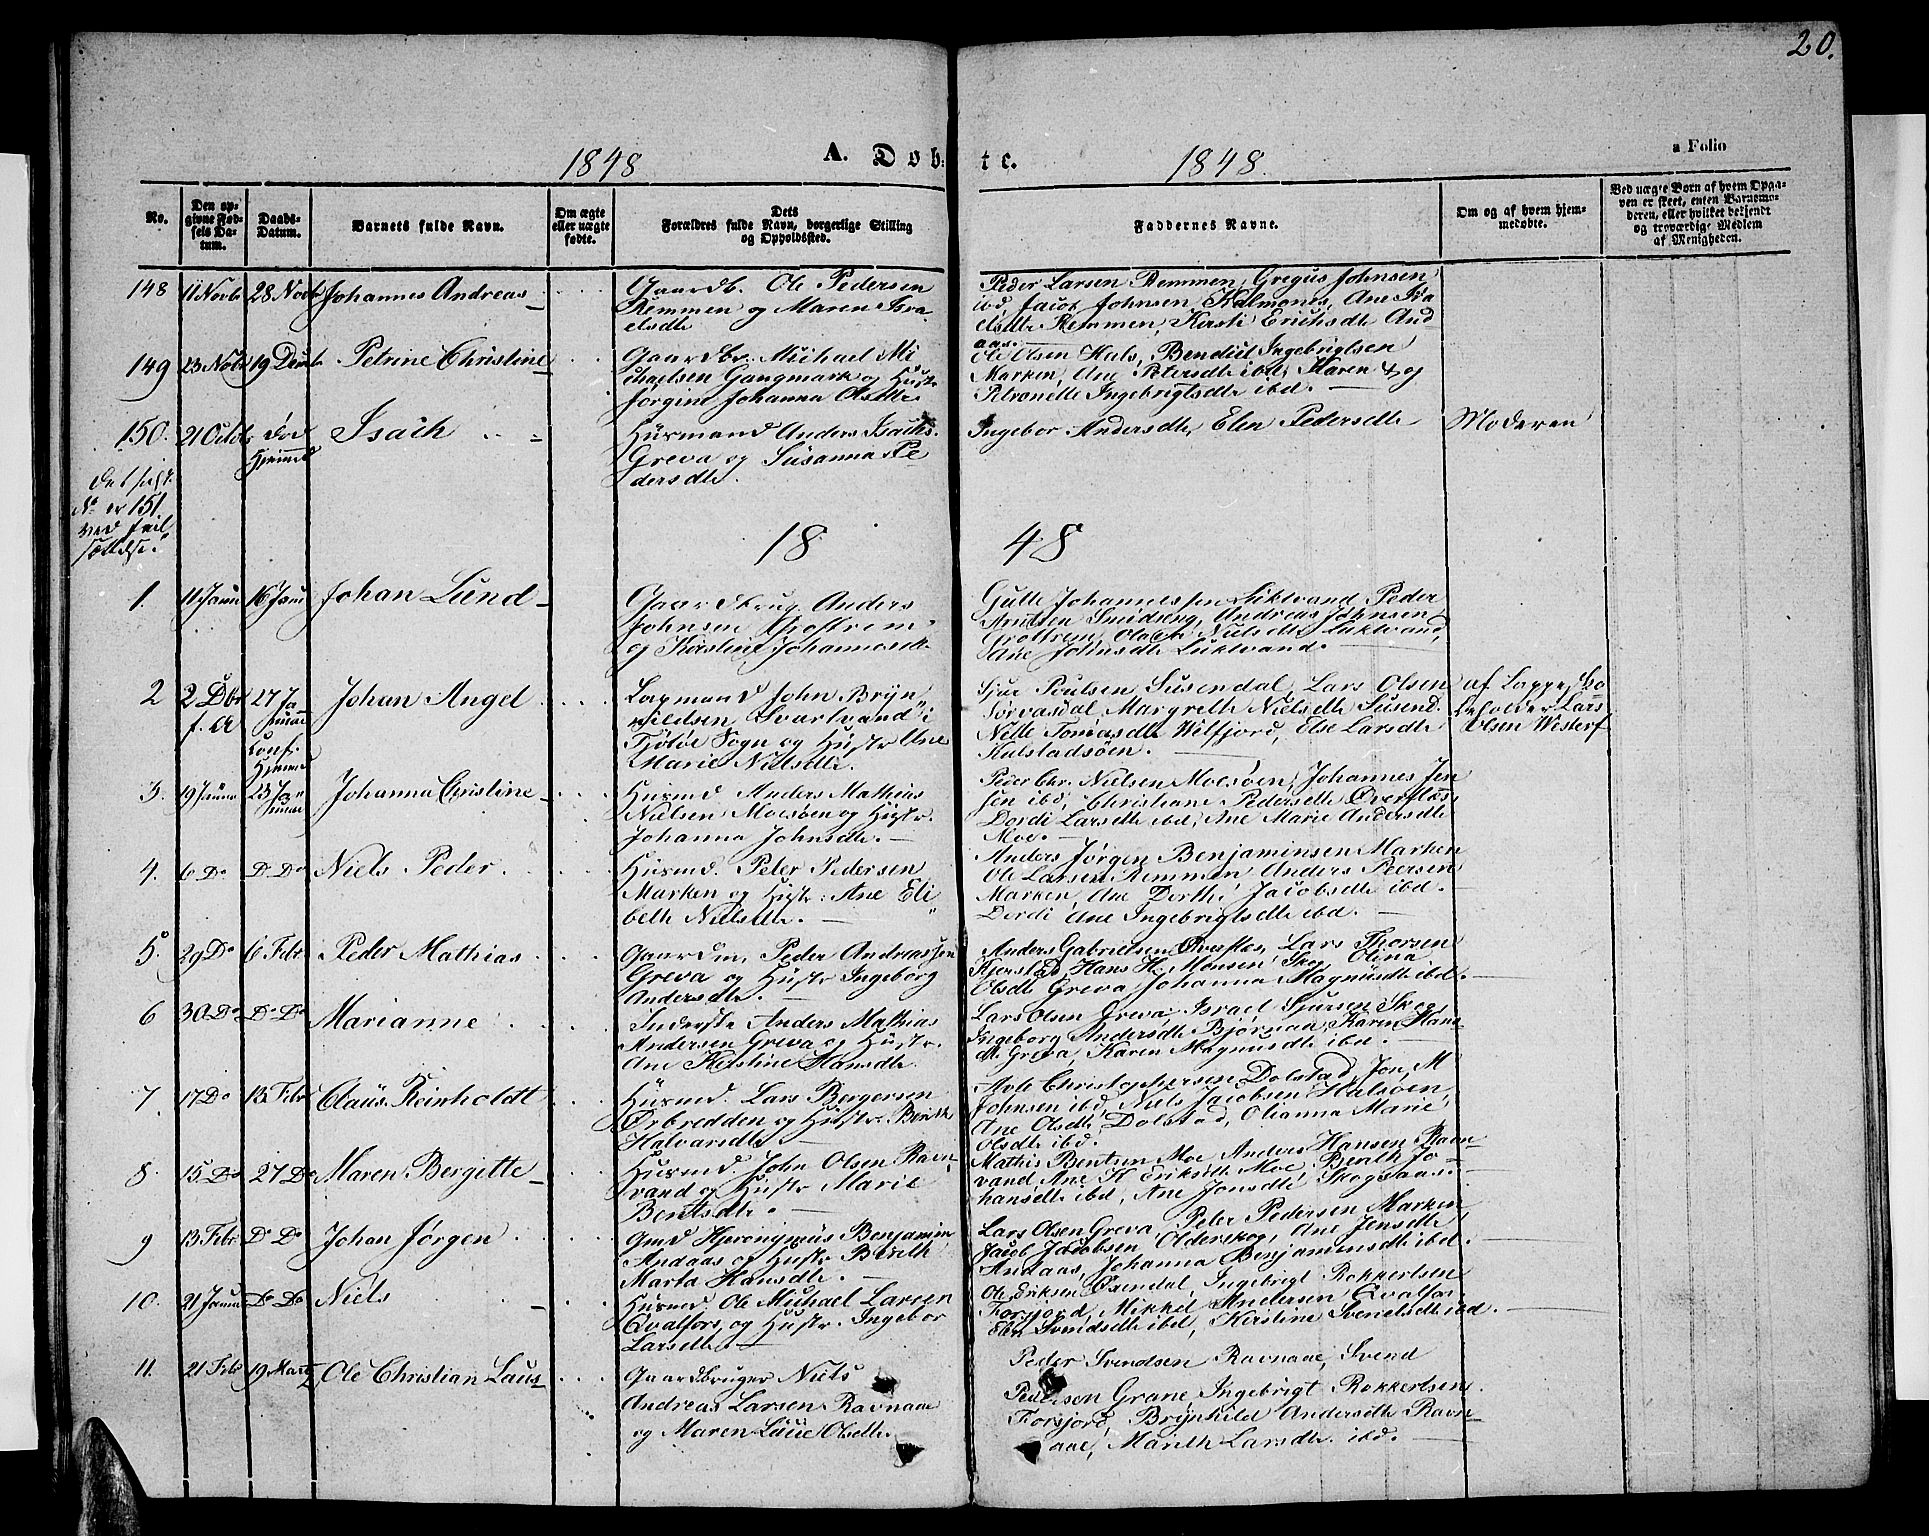 20.
1848 A. Døb- te. 1848. a Folio
No.
Den op-
givne Fød-
sels Da-
tum.
Daabs-
Datum.
Barnets fulde Navn.
Om ægte
eller uægte
fødte.
Dets
Forældres fulde Navn, borgerlige Stilling
og Opholdssted.
Faddernes Navne.
Om og af hvem hjem-
medøbte.
Ved uægte Børn af hvem Opga-
ven er skeet, enten Barnemo-
deren, eller hvilket bekjendt
og troværdigt Medlem
af Menigheden.
148 11 Novb 28 Novb Johannes Andreas
Gaardb. Ole Pedersen
Remmen og Maren Isra-
elsdtr
Peder Larsen Remmen, Gregus Johnsen
ibd, Jacob Johnsen Kalmones, Ane Isra
elsdtr Remmen, Kirsti Erichsdtr And
aas.
149 23 Novb 19 Decbr Petrine Christine
Gaardbr. Michael Mi
chaelsen Gangmark og Hustr
Jørgine Johanna Olsdtr
Ole Olsen Hals, Bendict Ingebrigtsen
Marken, Ane Petersdtr ibd, Maren & og
Petronelle Ingebrigtsdtr ibd.
150. 21 Octob døbt
Hjemme
Isach
Huusmand Anders Isachs.
Greva og Susanna Pe
dersdtr.
Ingebor Andersdtr, Elen Pedersdtr
Moderen
det sidste
No er 151
ved feil
sættelse.
18 48
1. 11 Januar 16 Janu Johan Lund
Gaardbrug. Anders
Johnsen Grostrem
og Kirstine Johannesdtr
Gulle Johannessen Luktvand, Peder
Arntsen Smedseng, Andreas Johnsen
Grostrem, Olach Nielsdtr Luktvand
Ane Johnsdtr Luktvand.
2 2 Dbr
f. A
27 Ja
nuar
Conf.
Hjemme
Johan Angel
Lapmand John Bryn
hildsen Svartvand i
Tjøtøe Sogn og Hustr Ane
Marie Nielsdtr.
Sjur Poulsen Susendal, Lars Olsen
Sørvasdal, Margrethe Nielsdtr Susend.
Nelle Tomasdtr Welfjord, Else Larsdtr
Kulstadsøen.
af Lappe, Bo
Lars
Olsen Westerf
3. 19 Januar 23 Ja
nuar
Johanna Cristine
Husmd Anders Mathias
Nielsen Moesøen og Hustr.
Johanna Johnsdtr.
Peder Chr. Nielsen Moesøen, Johannes Jen
sen ibd, Christiane Pedersdtr Øverflæs,
Dordi Larsdtr ibd, Ane Marie Andersdtr
Moe.
4. 6 Do D. Do Niels Peder.
Husmd. Peter Pedersen
Marken og Hustr: Ane Eli
beth Nielsdtr.
Anders Jørgen Benjaminsen Marken
Ole Larsen Remmen, Anders Peersen
Marken, Ane Dorthe Jacobsdtr ibd.
Dordi Ane Ingebrigtsdtr ibd.
5. 29 Do 6 Febr Peder Mathias
Gaardm. Peder Andreassen
Greva og Hustr Ingeborg
Andersdtr.
Anders Gabrielsen Øverflæs, Lars Thorsen
Fjerstad, Hans H. Monsen Skog, Olina
Olsdtr Greva, Johanna Magnusdtr ibd.
6 30 Do Do Do Marianne
Inderste Anders Mathias
Andersen Greva og Hustr.
Ane Kirstine Hansdtr.
Lars Olsen Greva, Israel Sjursen Skog
Ingeborg Andersdtr Bjørnaa, Karen Hans
dtr Greva, Karen Magnusdtr ibd.
7 17 Do 13 Febr Claus Reinholdt
Husmd. Lars Bergersen
Ørbredden og Hustr: Berith
Halvarsdtr.
Avle Christophersen Dolstad, Jon M
Johnsen ibd, Niels Jacobsen Halsøen,
Ane Olsdtr Dolstad, Olianna Marie
Olsdtr ibd.
8. 15 Do 27 Do Maren Bergitte
Husmd. John Olsen Ravn
vand og Hustr Marie
Bentsdtr.
Mathis Bentsen Moe, Anders Hansen Ravn-
vand, Ane K Eriksdtr Moe, Berith Jo-
hansdtr ibd, Ane Jonsdtr Skogsaas.
9 13 Febr. Do Do Johan Jørgen
Gmd Hieronymus Benjamin
Andaas og Hustr Berith
Marta Hansdtr.
Lars Olsen Greva, Peter Pedersen Marken
Jacob Jacobsen Olderskog, Ane Jensdtr
Andaas, Johanna Benjaminsdtr ibd.
10. 21 Januar Do Do Niels
Husmd. Ole Michael Larsen
Qvalfors, og Hustr. Ingebor
Larsdtr.
Ole Eriksen Øxendal, Ingebrigt Rokkertsen
Forsjord, Mikkel Andersen Qvalfor.
Elen Svendsdtr ibd, Kirstine Svendsdtr ibd.
11. 21 Febr 19 Marts Ole Christian Laus
Gaardbruger Niels
Andreas Larsen Ravnaae
og Maren Lucie Olsdtr.
Peder Svendsen Ravnaae, Svend
Pedersen Grane, Ingebrigt Rokkertsen
Forsjord, Brynhild Andersdtr Ravn-
aae, Marith Larsdtr. ibd.